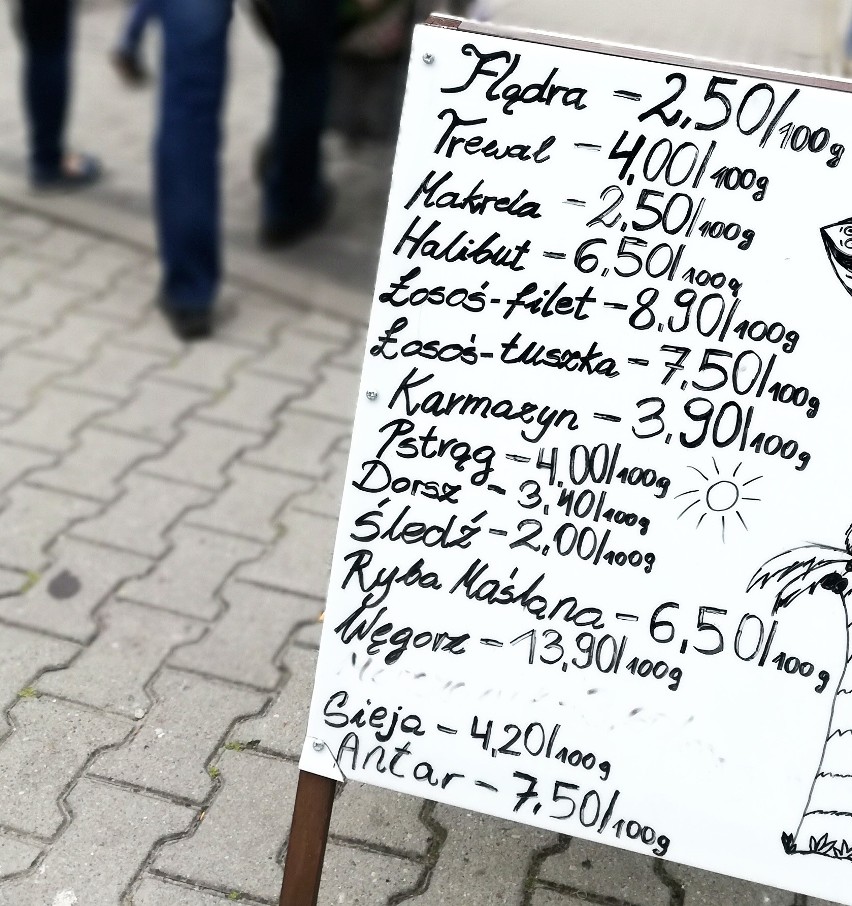 Flądra - 2,50/100g
Trewal - 4,00/100g
Makrela - 2,50/100g
Halibut - 6,50/100g
Łosoś-filet - 8,90/100g
Łosoś-tuszka - 7,50/100g
Karmazyn - 3,90/100g
Pstrąg - 4,00/100g
Dorsz - 3,40/100g
Śledź - 2,00/100g
Ryba Maślana - 6,50/100g
Węgorz - 13,90/100g
Sieja - 4,20/100g
Antar - 7,50/100g